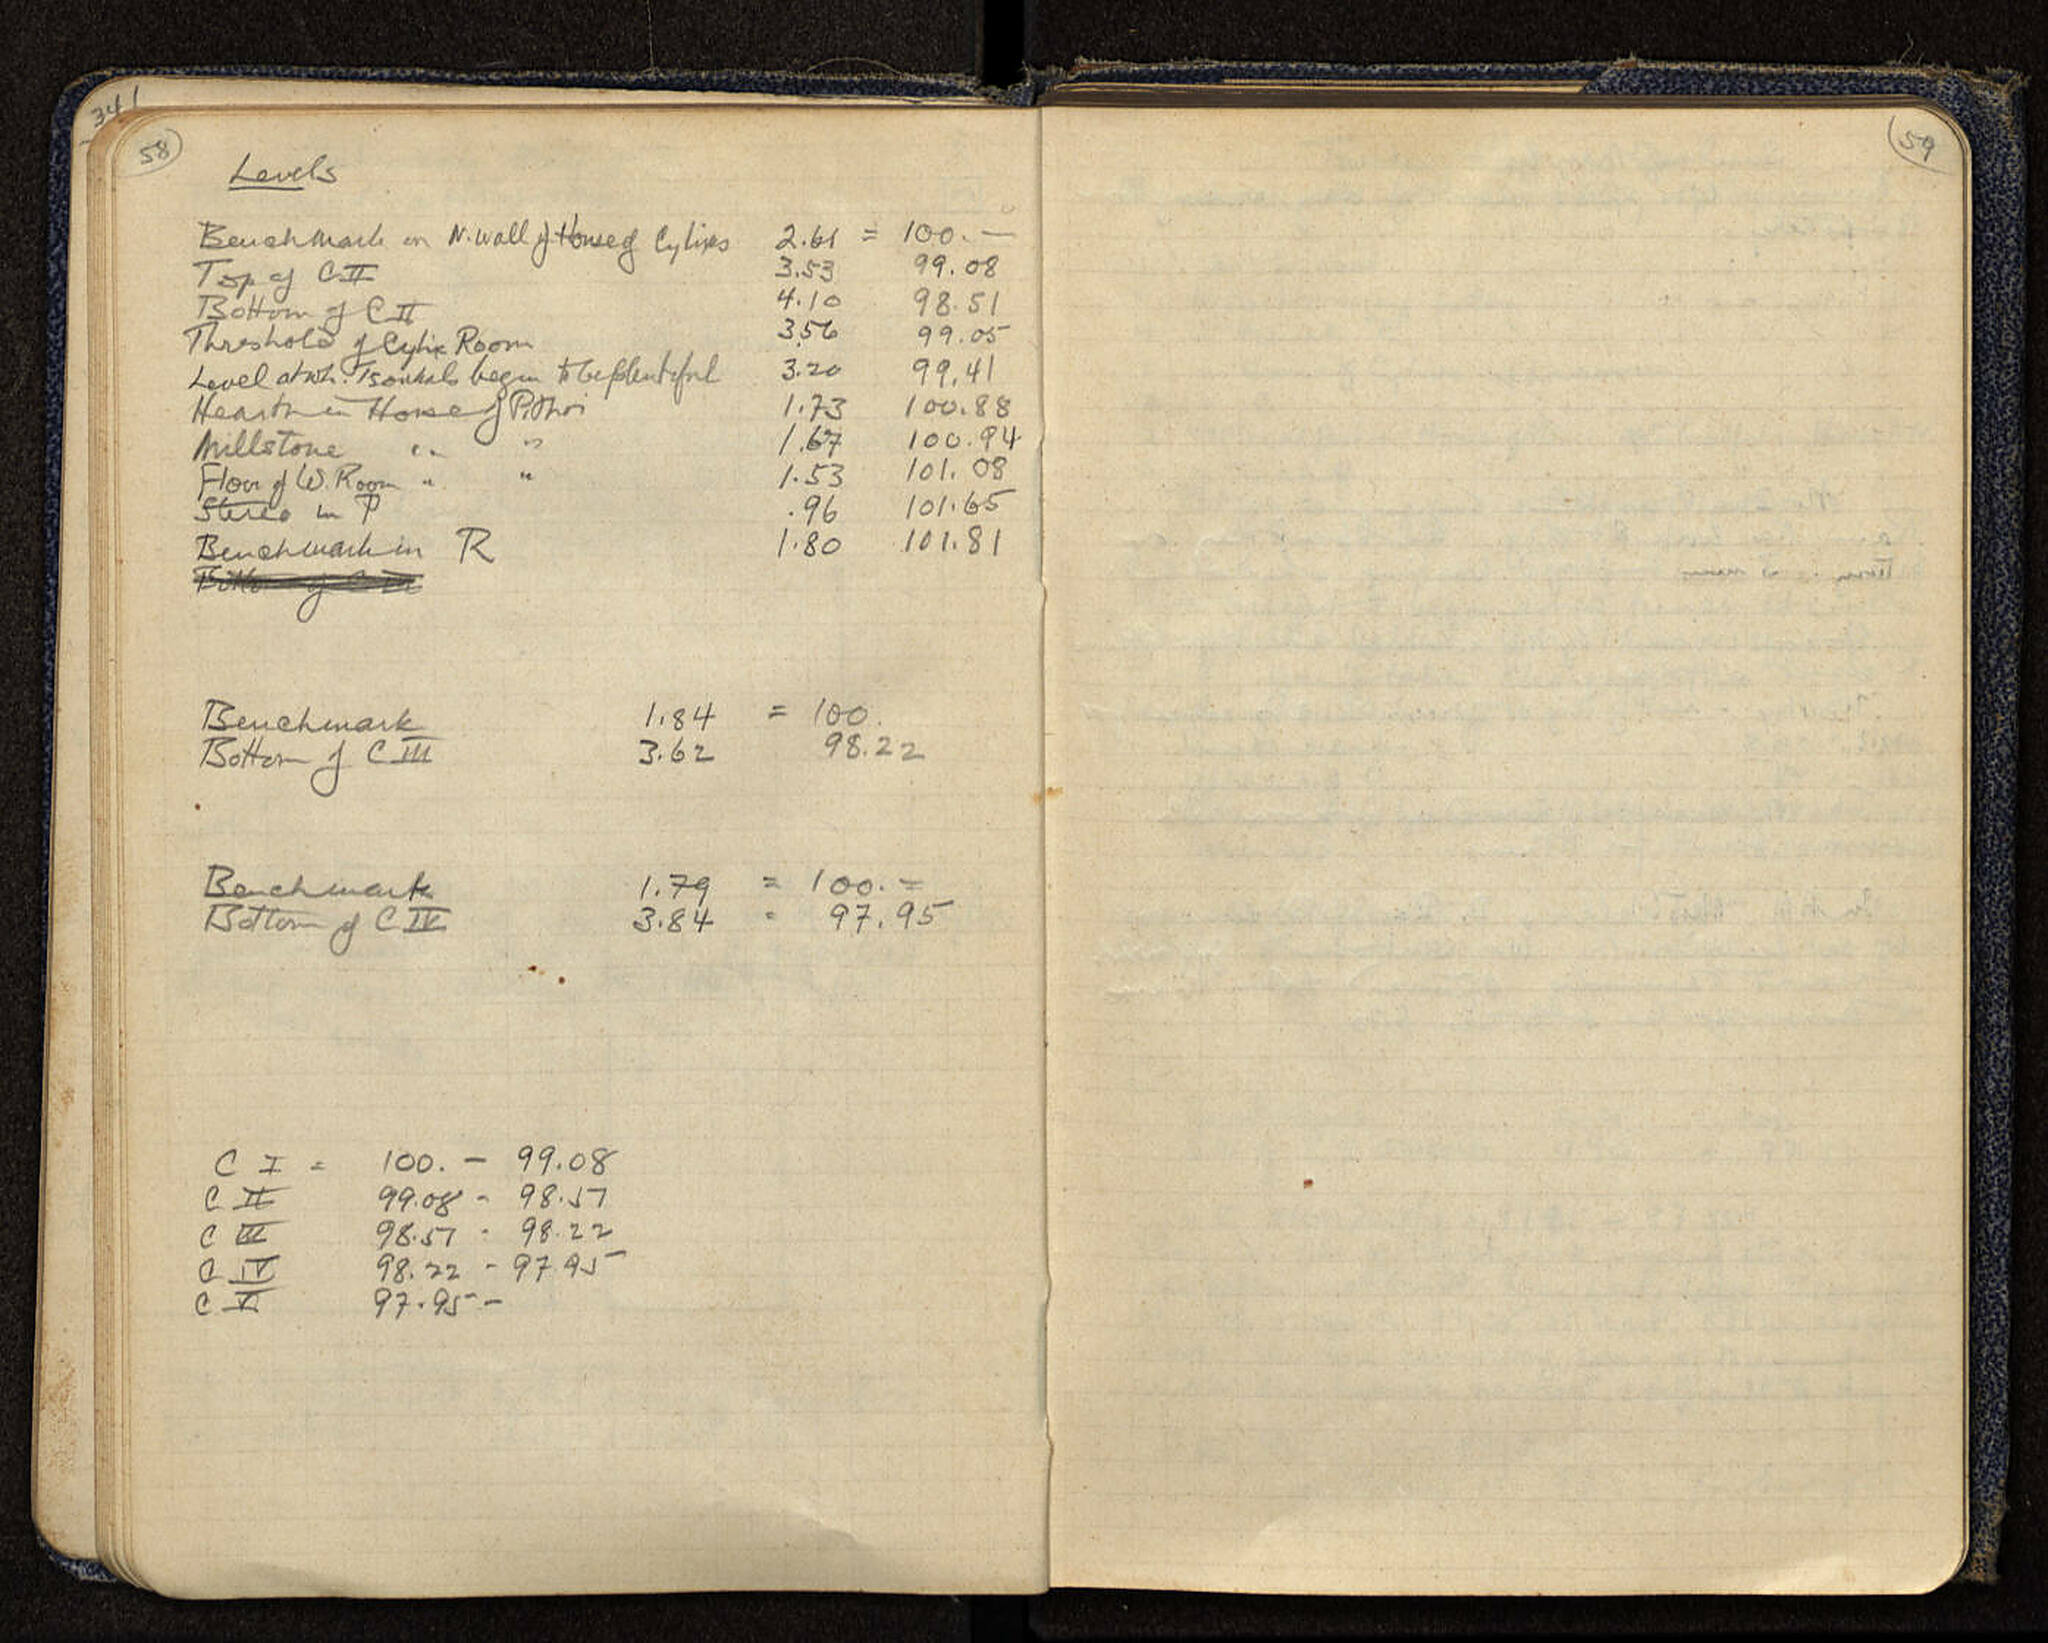 341
58
Levels
Benchmark on N. wall of House of Cylixes 2.61 = 100. —
Top of C II 3.53 99.08
Bottom of C II 4.10 98.51
Threshold of Cylix Room 3.56 99.05
Level at wh. Tsoukals begin to be plentiful 3.20 99.41
Hearth in House of Pithoi 1.73 100.88
Millstone " " 1.67 100.94
Floor of W. Room " " 1.53 101.08
Stereo in P .96 101.65
Benchmark in R 1.80 101.81
Benchmark 1.84 = 100.
Bottom of C III 3.62 98.22
Benchmark 1.79 = 100. =
Bottom of C IV 3.84 - 97.95
C I = 100. — 99.08
C II 99.08 - 98.51
C III 98.51 - 98.22
C IV 98.22 - 97.95
C V 97.95 -
59